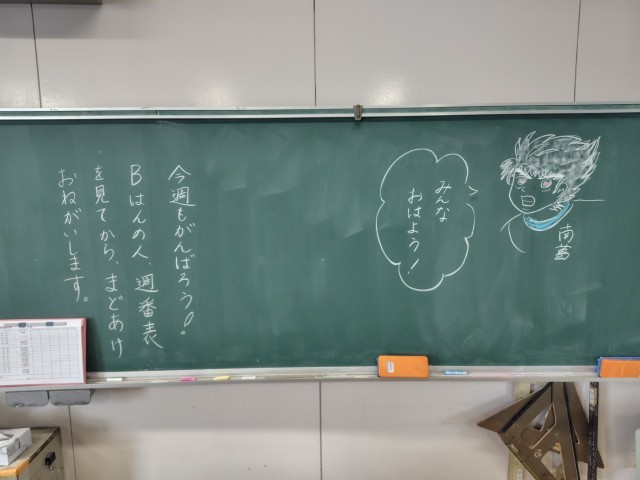 南葛
みんな
おはよう！
今週もがんばろう！
Bはんの人、週番表
を見てから、まどあけ
おねがいします。